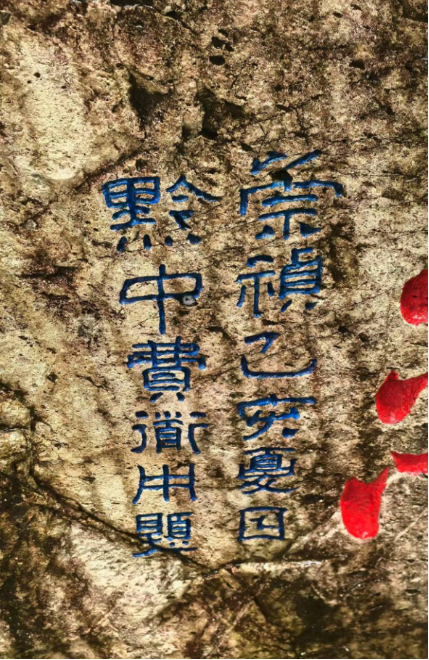 崇禎乙亥夏日
黔中費衜用題